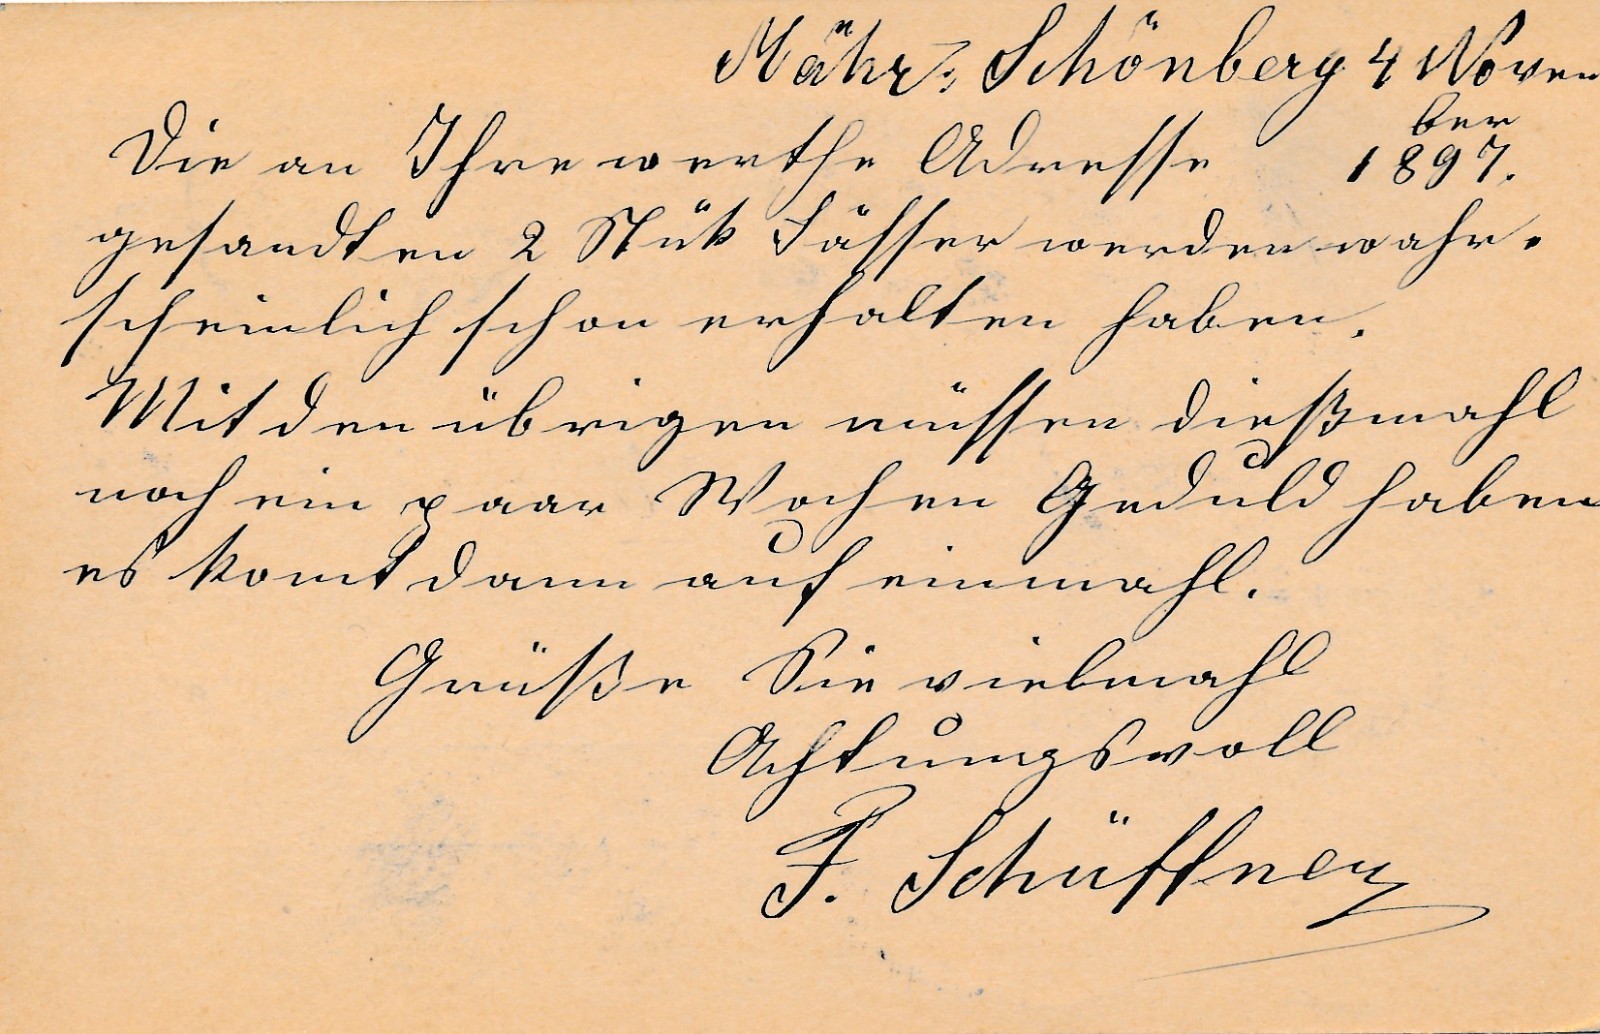 Mähr: Schönberg 4 Novem
ber
1897.
Die an Ihre werthe Adresse
gesandten 2 Stük Fässer werden wahr-
scheinlich schon erhalten haben.
Mit den übrigen müssen dießmahl
noch ein paar Wochen Geduld haben
es komt dann auf einmahl.
Grüße Sie vielmahl
Achtungsvoll
F. Schüffner